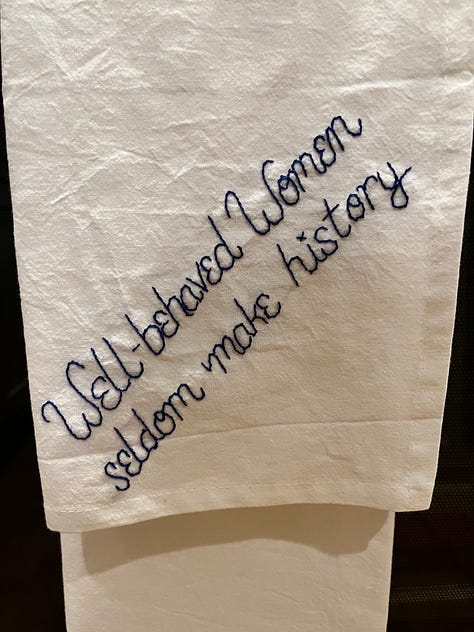 Well-behaved Women
seldom make history